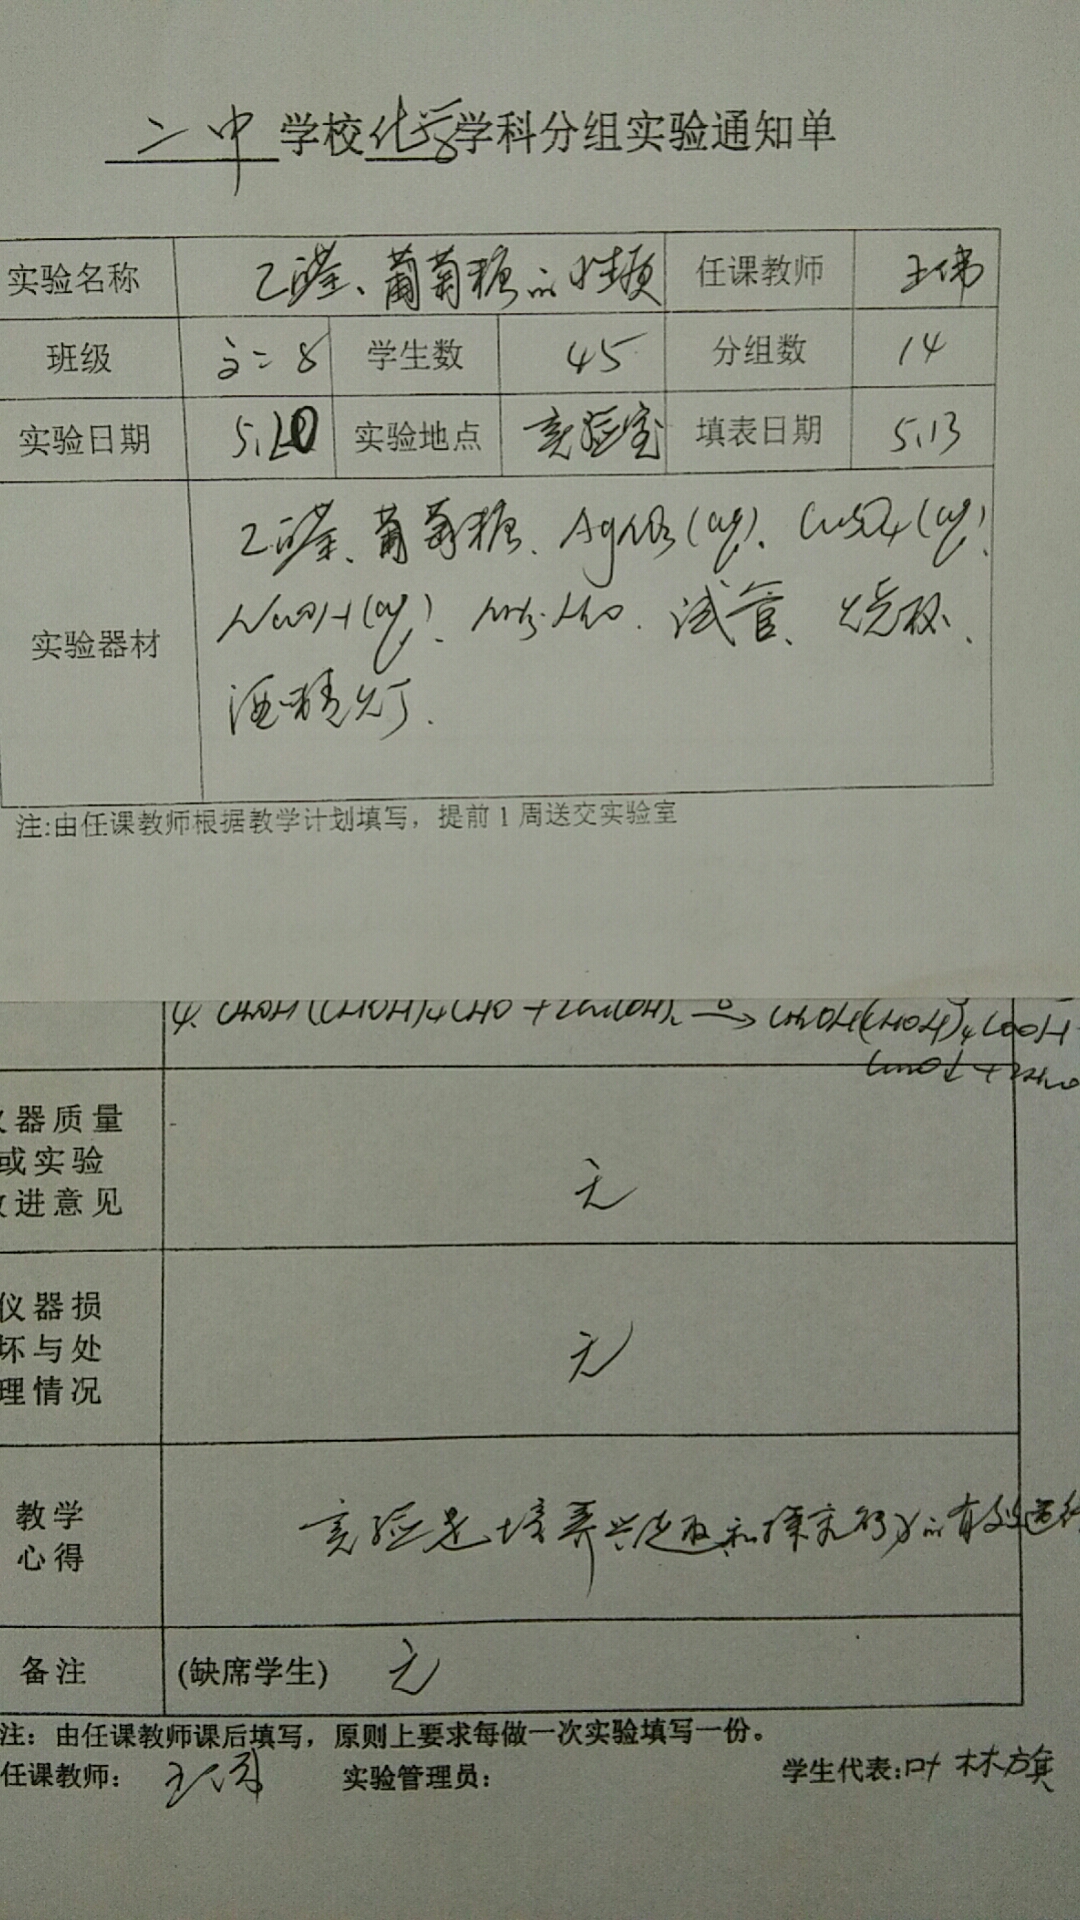 二中学校化学学科分组实验通知单
实验名称 乙醛、葡萄糖的性质 任课教师 王伟
班级 高二8 学生数 45 分组数 14
实验日期 5.20 实验地点 实验室 填表日期 5.13
乙醛、葡萄糖、AgNO3(aq)、CuSO4(aq)、
实验器材 NaOH(aq)、NH3·H2O、试管、烧杯、
酒精灯.
注:由任课教师根据教学计划填写，提前1周送交实验室
4. CH2OH(CHOH)4CHO+2Cu(OH)2 →△ CH2OH(CHOH)4COOH
Cu2O↓+2H2O
仪器质量
或实验
改进意见
无
仪器损
坏与处
理情况
无
教学
心得
实验是培养兴趣和探究行为的有效途径
备注 (缺席学生) 无
注：由任课教师课后填写，原则上要求每做一次实验填写一份。
任课教师： 王伟 实验管理员： 学生代表:叶林旗